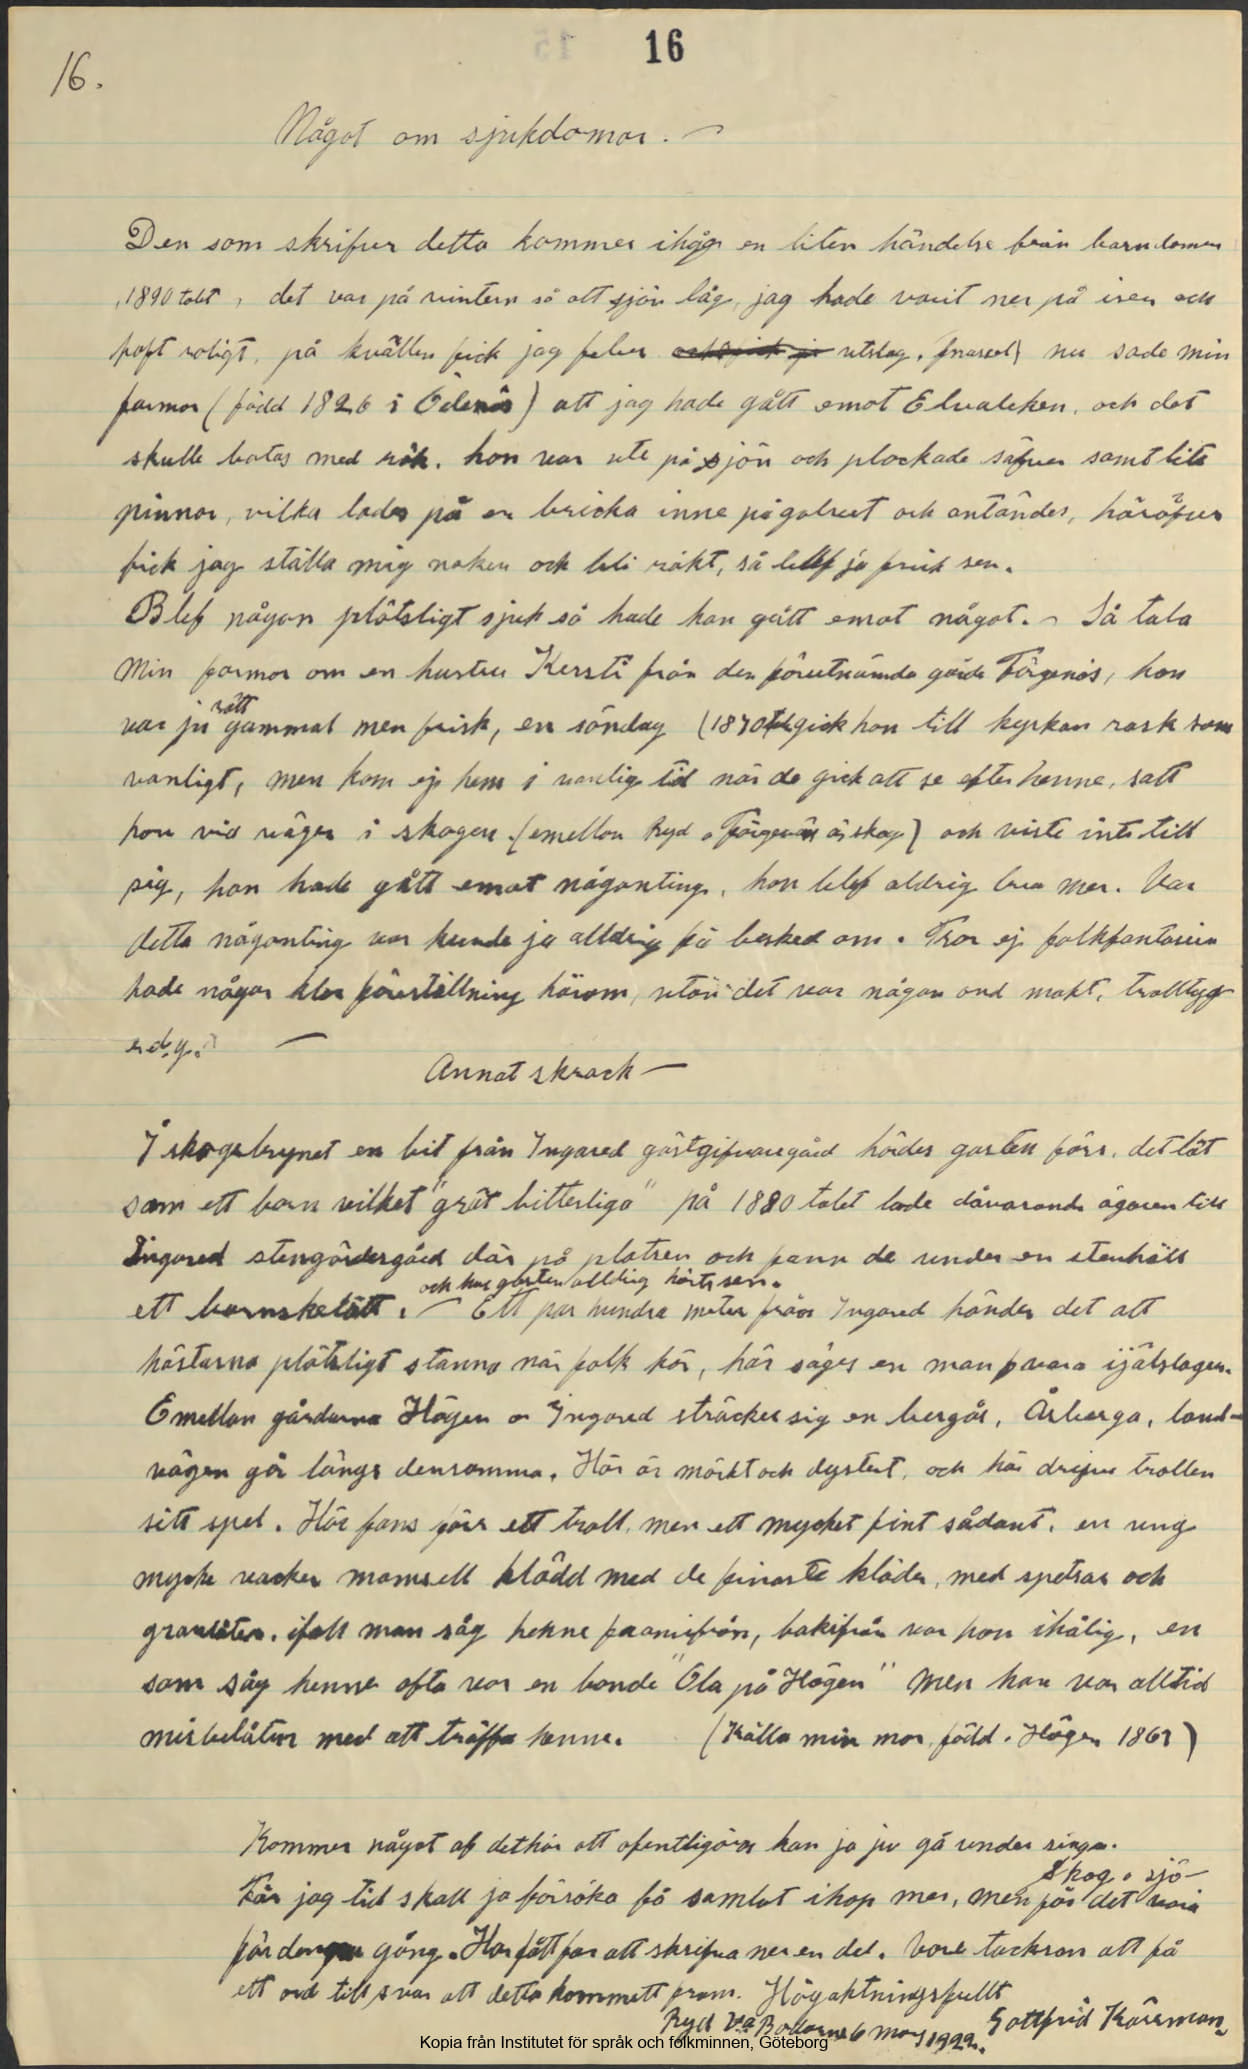 16
16.
Något om sjukdomar.
Den som skrifver detta kommer ihåg en liten händelse från barndomen
, 1890 talet, det var på vintern så att sjön låg, jag hade varit ner på isen och
haft roligt, på kvällen fick jag feber utslag, nu sade min
farmor (född 1826 i Ödenäs) att jag hade gått emot Elvaleken, och det
skulle botas med rök. hon var ute på sjön och plockade säfver samt lite
pinnor, vilka lades på en bricka inne på golvet och antändes, häröfver
fick jag ställa mig naken och bli rökt, så blef ja frisk sen.
Blef någon plötsligt sjuk så hade han gått emot något. Så tala
min farmor om en hustru Kersti från den förutnämda gården Färgenäs, hon
var ju rätt gammal men frisk, en söndag (1870 gick hon till kyrkan rask som
vanligt, men kom ej hem i vanlig tid när de gick att se efter henne, satt
hon vid vägen i skogen (emellan Ryd o Färgenäs är skog) och viste inte till
sig, hon hade gått emot någonting, hon blef aldrig bra mer. Var
detta någonting var kunde ja alldrig få besked om. Tror ej folkfantasien
hade någon klar föreställning härom, utan det var någon ond makt, trolltyg
e.d.y.
Annat skrock
I skogsbrynet en bit från Ingared gästgifvaregård hördes gasten förr, det lät
som ett barn vilket "grät bitterliga" på 1880 talet lade dåvarande ägaren till
Ingared stengärdesgård där på platsen och fann de under en stenhäll
ett barnskelätt. och har gasten alldrig hörts sen. Ett par hundra meter från Ingared händer det att
hästarna plötsligt stanna när folk kör, här säges en man vara ijälslagen.
Emellan gårdarna Högen o Ingared sträcker sig en bergås, Åsberga, land-
vägen går längs densamma. Här är mörkt och dystert, och här drifver trollen
sitt spel. Här fans förr ett troll, men ett mycket fint sådant, en ung
mycke vacker mamsell klädd med de finaste kläder, med spetsar och
grannlåter, ifall man såg henne framifrån, bakifrån var hon ihålig, en
som såg henne ofta var en bonde "Ola på Högen" men han var alltid
misbelåten med att träffa henne. (Källa min mor, född i Högen 1867)
Kommer något af dethär att ofentligöras kan ja ju gå under singn.
Skog o sjö
Får jag tid skall ja försöka få samlat ihop mer, men får det vara
för denna gång. Har fått far att skrifva ner en del. Vore tacksam att få
ett ord till svar att detta kommett fram. Högaktningsfullt
Ryd V:a Bodarne 6 mars 1922. Gottfrid Kärrman
Kopia från Institutet för språk och folkminnen, Göteborg